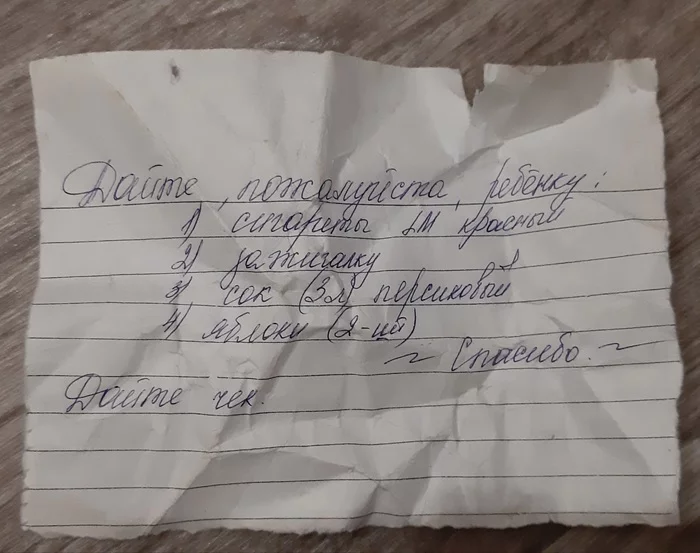 Дайте, пожалуйста, ребёнку:
1) сигареты LM красный
2) зажигалку
3) сок (3л) персиковый
4) яблоки (2-ий)
~ Спасибо. ~
Дайте чек.